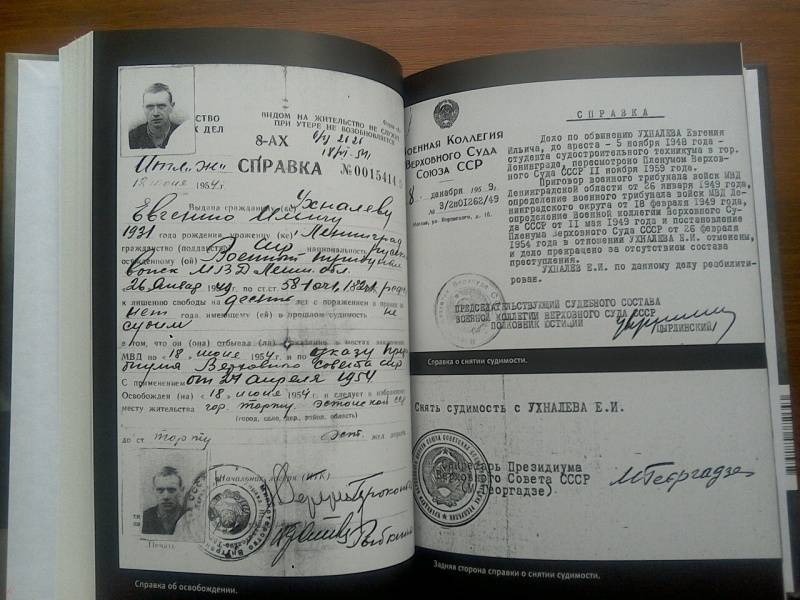 СТВО
Х ДЕЛ
ВИДОМ НА ЖИТЕЛЬСТВО НЕ СЛУЖИТ
ПРИ УТЕРЕ НЕ ВОЗОБНОВЛЯЕТСЯ
8-АХ
СПРАВКА
№ 0015414
18 июня 1954 г.
Выдана гражданину (ке) Ухналеву
Евгению Ильичу
1931 года рождения, уроженцу (ке) г. Ленинград
гражданство (подданство) СССР национальность русский
осужденному (ой) Военным трибуналом
войск МВД Ленин. обл.
26 Январ 49 г. по ст.ст.
к лишению свободы на десять лет с поражением в правах на
нет года, имеющему (ей) в прошлом судимость не
судим
в том, что он (она) отбывал (ла) наказание в местах заключения
МВД по "18" июня 1954 г. и по указу През
идиума Верховного Совета СССР
С применением от 24 апреля 1954
Освобожден (на) "18" июня 1954 г. и следует к избранному
месту жительства гор. Тарту, Эстонской ССР
(город, село, дер., район, область)
до ст. Тарту Эст. жел. дороги
Начальник лагеря (ИТК)
Печать
Справка об освобождении.
ВОЕННАЯ КОЛЛЕГИЯ
ВЕРХОВНОГО СУДА
СОЮЗА ССР
8. декабря 1959 г.
№ 3/2п01262/49
Москва, ул. Воровского, д. 15
СПРАВКА
Дело по обвинению УХНАЛЕВА Евгения
Ильича, до ареста - 5 ноября 1948 года -
студента судостроительного техникума в гор.
Ленинграде, пересмотрено Пленумом Верхов-
ного Суда СССР 11 ноября 1959 года.
Приговор военного трибунала войск МВД
Ленинградской области от 26 января 1949 года,
определение военного трибунала войск МВД Ле-
нинградского округа от 18 февраля 1949 года,
определение Военной коллегии Верховного Су-
да СССР от 11 мая 1949 года и постановление
Пленума Верховного Суда СССР от 26 февраля
1954 года в отношении УХНАЛЕВА Е.И. отменены,
и дело прекращено за отсутствием состава
преступления.
УХНАЛЕВ Е.И. по данному делу реабилити-
рован.
ПРЕДСЕДАТЕЛЬСТВУЮЩИЙ СУДЕБНОГО СОСТАВА
ВОЕННОЙ КОЛЛЕГИИ ВЕРХОВНОГО СУДА СССР
ПОЛКОВНИК ЮСТИЦИИ
(ЦЫРЛИНСКИЙ)
Справка о снятии судимости.
Снять судимость с УХНАЛЕВА Е.И.
Секретарь Президиума
Верховного Совета СССР
(М. Георгадзе)
М Георгадзе
Задняя сторона справки о снятии судимости.